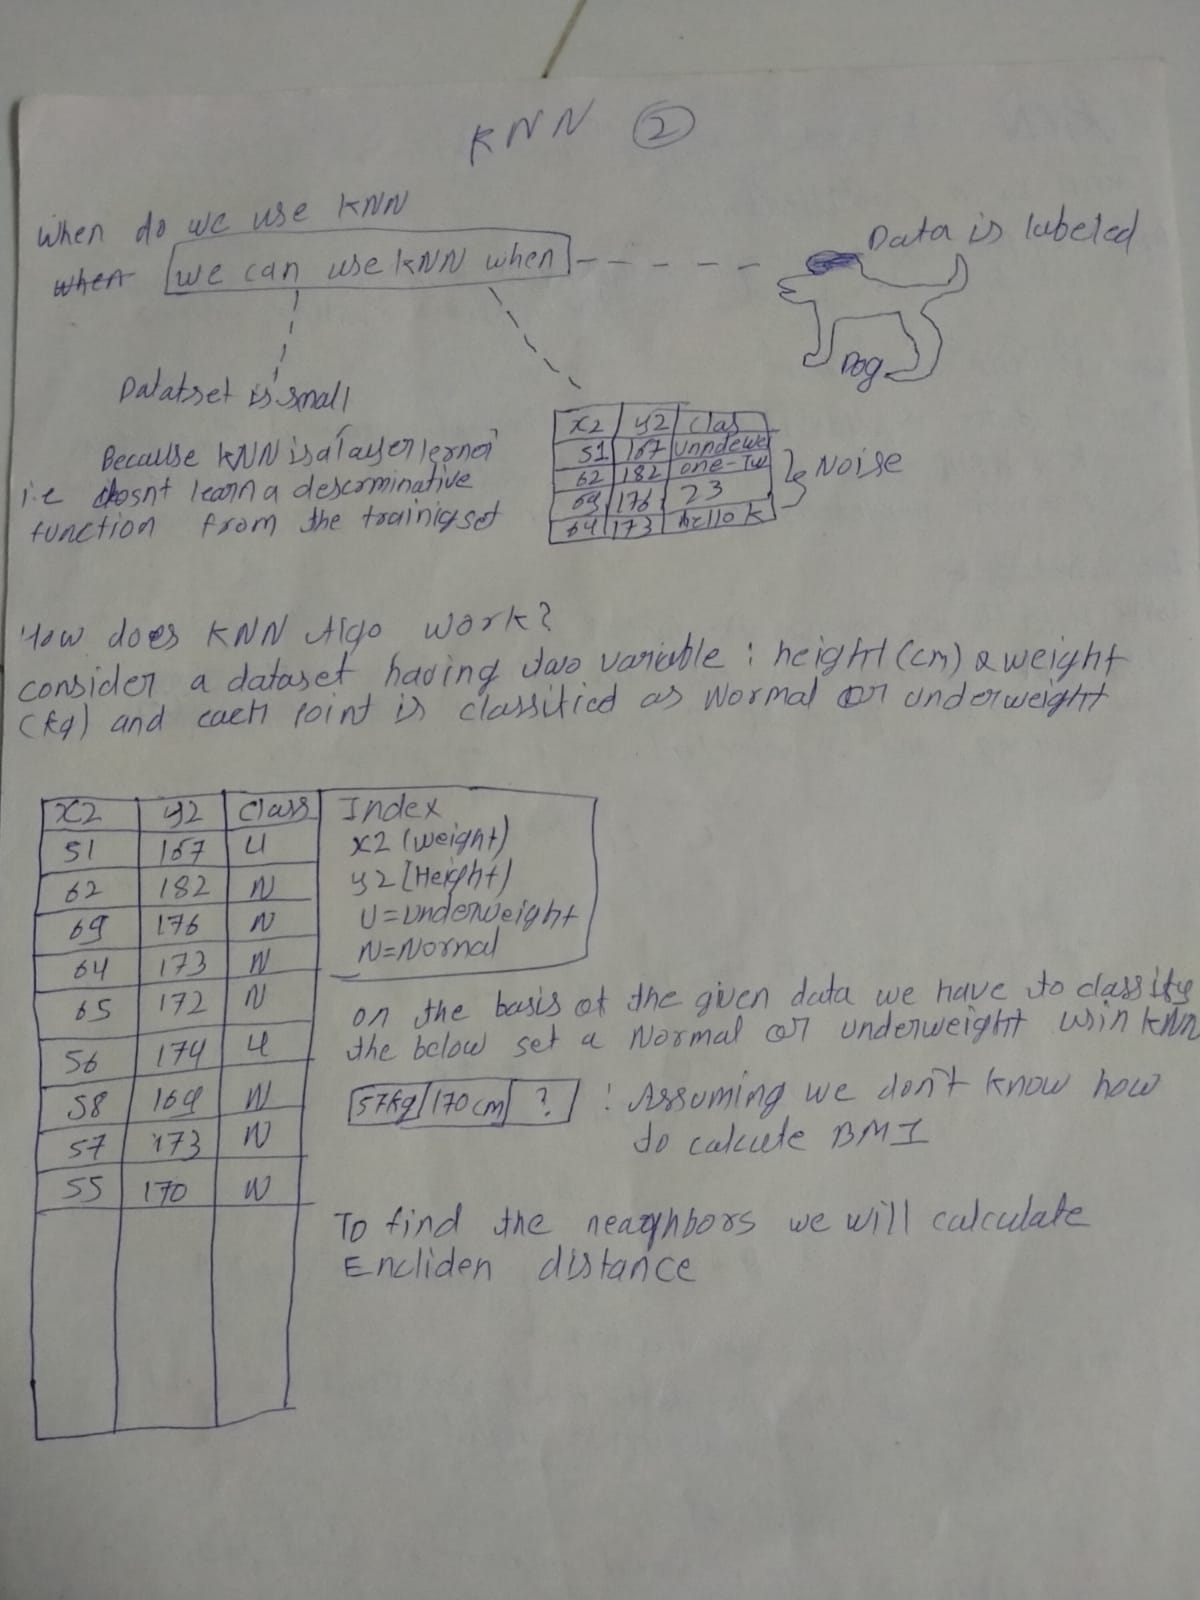 KNN ②
When do we use KNN
when we can use KNN when
Data is labeled
Dog
Datatset is small
Because KNN is a layer lerner
i.e dosnt learn a descriminative
function from the trainig set
x2 y2 clas
51 167 unndewe
62 182 one-Tw
69 176 23
64 173 hello k
Noise
How does KNN Algo work?
consider a dataset having two variable : height (cm) & weight
(kg) and each point is classified as Normal or underweight
x2 y2 class
51 167 U
62 182 N
69 176 N
64 173 N
65 172 N
56 174 U
58 169 N
57 173 N
55 170 N
Index
x2 (weight)
y2 [Height)
U=underweight
N=Normal
on the basis of the given data we have to classify
the below set a Normal or underweight usin KNN
57kg 170cm ? : Assuming we don't know how
to calcute BMI
To find the neaghbors we will calculate
Encliden distance